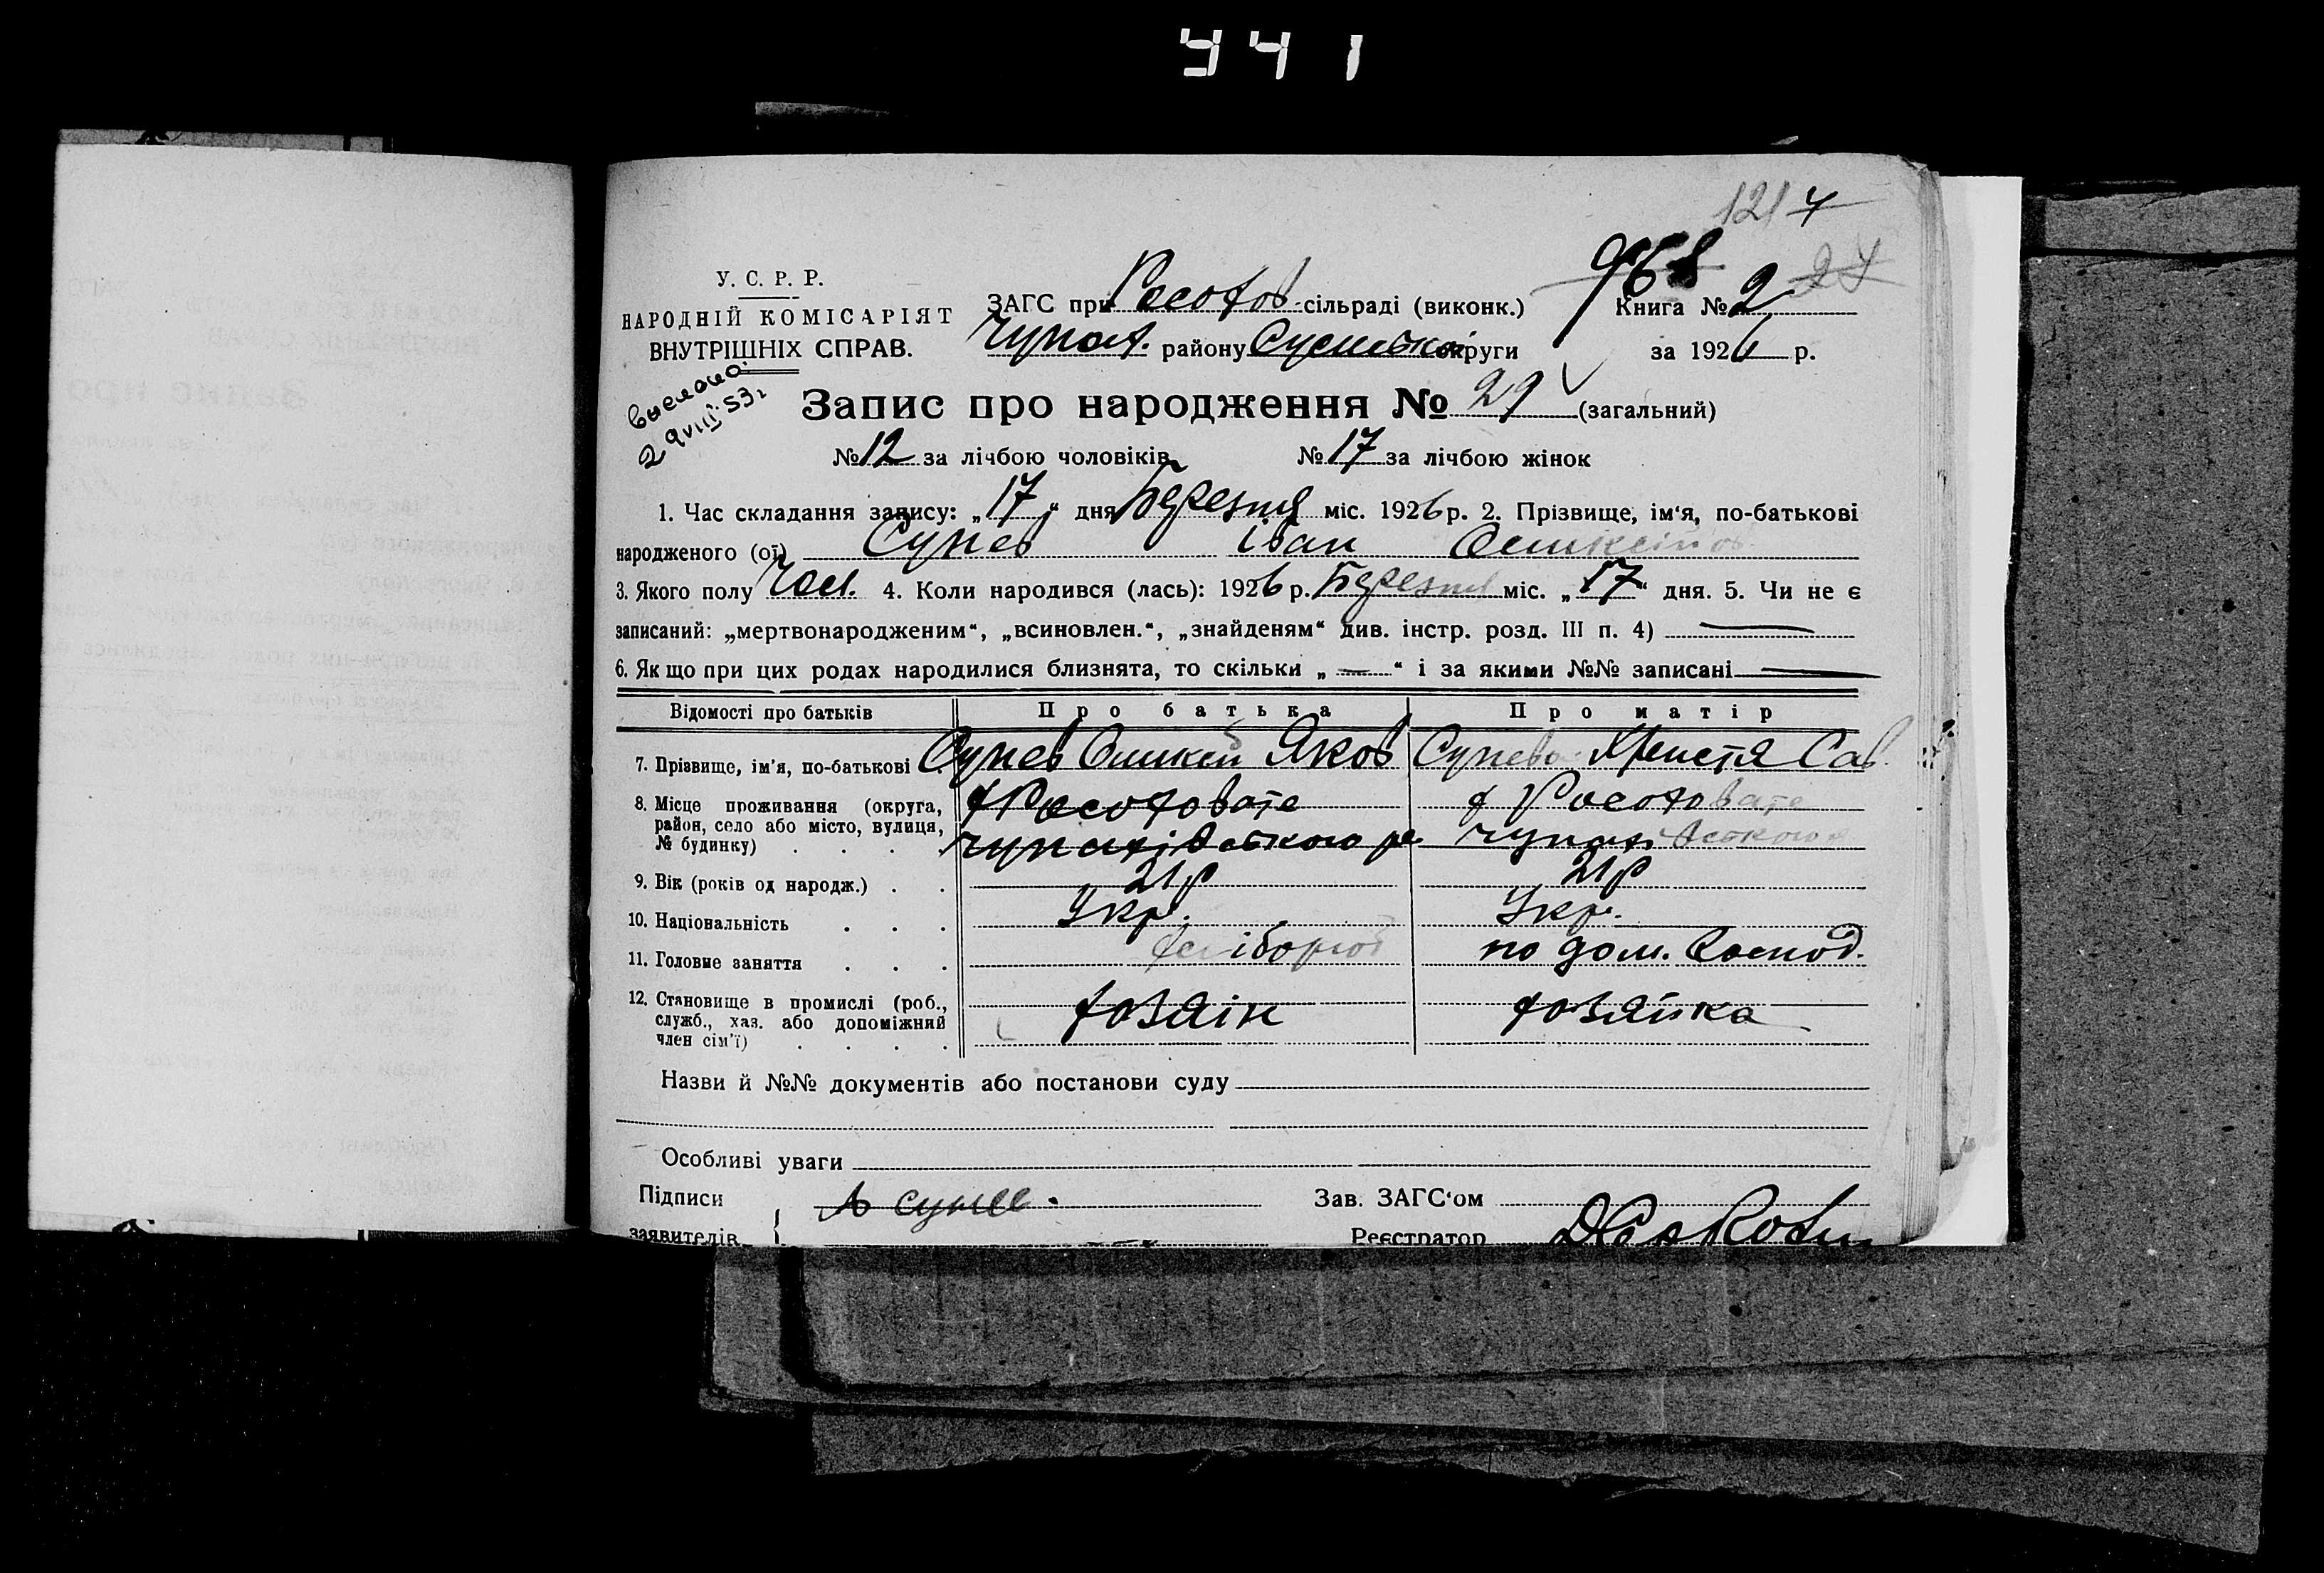 441
121 4
968
24
У. С. Р. Р.
НАРОДНІЙ КОМІСАРІЯТ
ВНУТРІШНІХ СПРАВ.
ЗАГС при Росохов сільраді (виконк.)
Чупах. району Сумської округи
Книга № 2
за 1926 р.
выслано
29 VIII 53 г
Запис про народження № 29 (загальний)
№ 12 за лічбою чоловіків № 17 за лічбою жінок
1. Час складання запису: „17“ дня Березня міс. 1926 р. 2. Прізвище, ім‘я, по-батькові
народженого (ої) Супев Іван
3. Якого полу Чол. 4. Коли народився (лась): 1926 р. Березня міс. „17“ дня. 5. Чи не є
записаний: „мертвонародженим“, „всиновлен.“, „знайденям“ див. інстр. розд. III п. 4) —
6. Якщо при цих родах народилися близнята, то скільки „—“ і за якими №№ записані —
Відомості про батьків Про батька Про матір
7. Прізвище, ім‘я, по-батькові Супев Яков Супева Христя Сав.
8. Місце проживання (округа, район, село або місто, вулиця, № будинку) х Росоховате х Росоховате
Чупахівського ра Чупахівського
9. Вік (років од народж.) 21 р 21 р
10. Національність Укр. Укр.
11. Головне заняття хлібороб по дом. Господ.
12. Становище в промислі (роб., служб., хаз. або допоміжний член сім‘ї) хозяін хозяйка
Назви й №№ документів або постанови суду
Особливі уваги
Підписи
заявителів
Зав. ЗАГС‘ом
Реєстратор